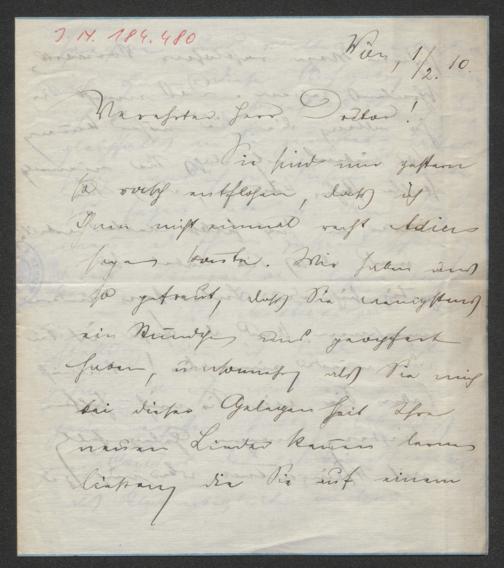 J.N. 184.480
Wien, 1/2. 10.
Verehrter Herr Doktor!
Sie sind mir gestern
so rasch entflohen, daß ich
Ihnen nicht einmal recht Adieu
sagen konnte. Wir haben uns
so gefreut, daß Sie wenigstens
ein Stündchen uns geopfert
haben, umsomehr als Sie mich
bei dieser Gelegenheit Ihre
neuen Lieder kennen lernen
ließen, die Sie auf einem